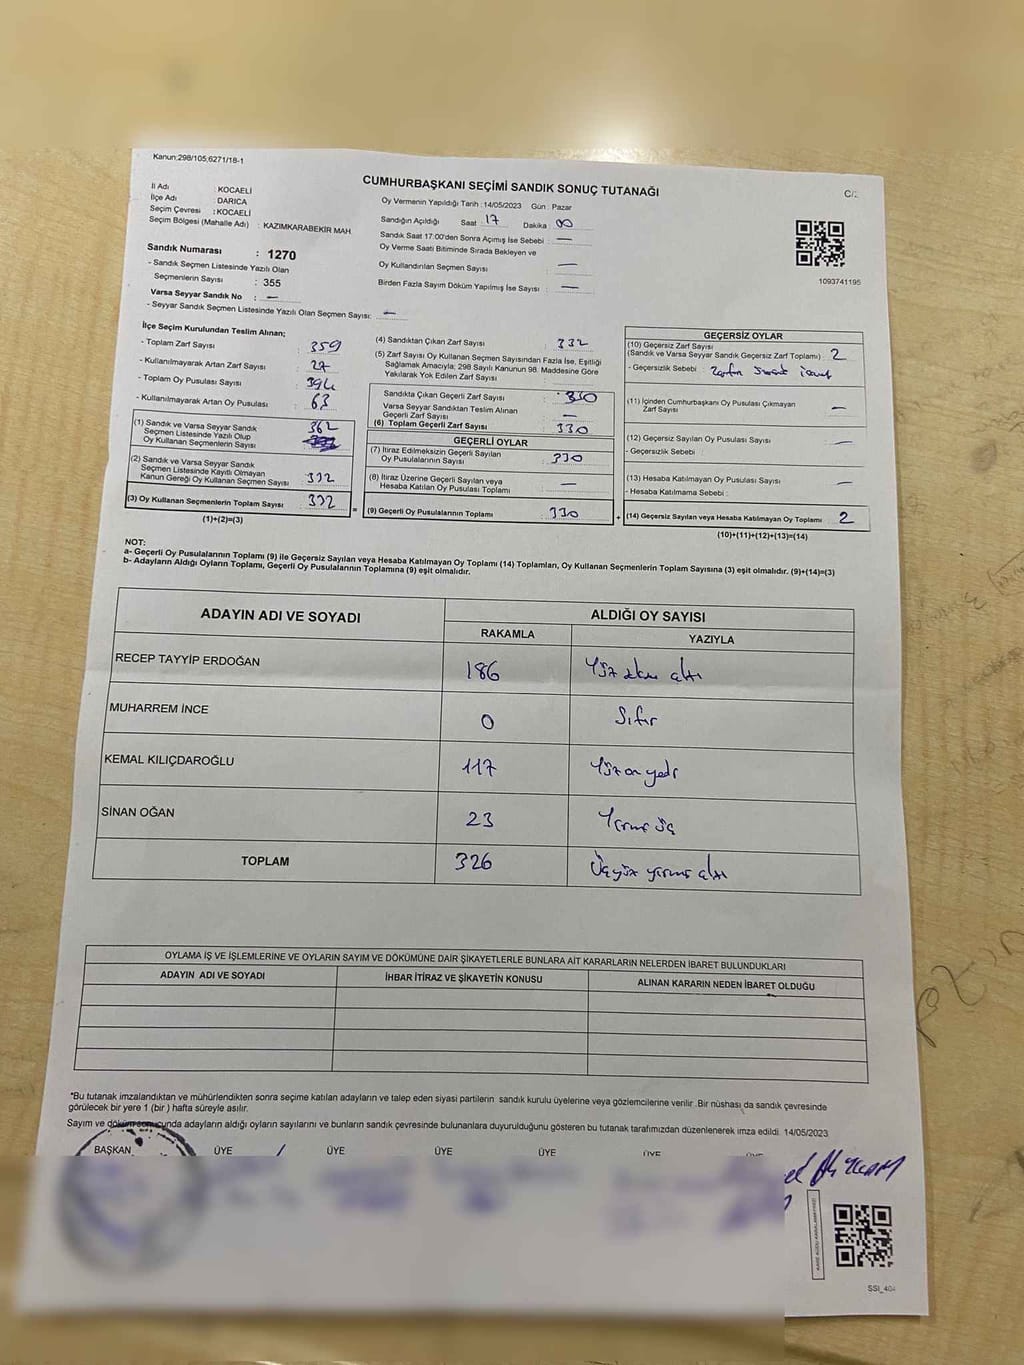 Kanun:298/105;6271/18-1
CUMHURBAŞKANI SEÇİMİ SANDIK SONUÇ TUTANAĞI
İl Adı : KOCAELİ
İlçe Adı : DARICA
Seçim Çevresi : KOCAELİ
Seçim Bölgesi (Mahalle Adı) : KAZIMKARABEKİR MAH.
Sandık Numarası : 1270
- Sandık Seçmen Listesinde Yazılı Olan
Seçmenlerin Sayısı : 355
Varsa Seyyar Sandık No : —
- Seyyar Sandık Seçmen Listesinde Yazılı Olan Seçmen Sayısı: —
Oy Vermenin Yapıldığı Tarih : 14/05/2023 Gün : Pazar
Sandığın Açıldığı Saat : 17 Dakika : 00
Sandık Saat 17:00'den Sonra Açımış İse Sebebi : —
Oy Verme Saati Bitiminde Sırada Bekleyen ve
Oy Kullandırılan Seçmen Sayısı : —
Birden Fazla Sayım Döküm Yapılmış İse Sayısı : —
1093741195
İlçe Seçim Kurulundan Teslim Alınan;
- Toplam Zarf Sayısı : 359
- Kullanılmayarak Artan Zarf Sayısı : 27
- Toplam Oy Pusulası Sayısı : 394
- Kullanılmayarak Artan Oy Pusulası : 63
(1) Sandık ve Varsa Seyyar Sandık
Seçmen Listesinde Yazılı Olup
Oy Kullanan Seçmenlerin Sayısı :
(2) Sandık ve Varsa Seyyar Sandık
Seçmen Listesinde Kayıtlı Olmayan
Kanun Gereği Oy Kullanan Seçmen Sayısı : 332
(3) Oy Kullanan Seçmenlerin Toplam Sayısı : 332
(1)+(2)=(3)
(4) Sandıktan Çıkan Zarf Sayısı : 332
(5) Zarf Sayısı Oy Kullanan Seçmen Sayısından Fazla İse, Eşitliği
Sağlamak Amacıyla; 298 Sayılı Kanunun 98. Maddesine Göre
Yakılarak Yok Edilen Zarf Sayısı :
Sandıkta Çıkan Geçerli Zarf Sayısı : 330
Varsa Seyyar Sandıktan Teslim Alınan
Geçerli Zarf Sayısı : —
(6) Toplam Geçerli Zarf Sayısı : 330
GEÇERLİ OYLAR
(7) İtiraz Edilmeksizin Geçerli Sayılan
Oy Pusulalarının Sayısı : 330
(8) İtiraz Üzerine Geçerli Sayılan veya
Hesaba Katılan Oy Pusulası Toplamı : —
(9) Geçerli Oy Pusulalarının Toplamı : 330
GEÇERSİZ OYLAR
(10) Geçersiz Zarf Sayısı
(Sandık ve Varsa Seyyar Sandık Geçersiz Zarf Toplamı) : 2
- Geçersizlik Sebebi :
(11) İçinden Cumhurbaşkanı Oy Pusulası Çıkmayan
Zarf Sayısı : —
(12) Geçersiz Sayılan Oy Pusulası Sayısı : —
- Geçersizlik Sebebi :
(13) Hesaba Katılmayan Oy Pusulası Sayısı : —
- Hesaba Katılmama Sebebi :
(14) Geçersiz Sayılan veya Hesaba Katılmayan Oy Toplamı : 2
(10)+(11)+(12)+(13)=(14)
NOT:
a- Geçerli Oy Pusulalarının Toplamı (9) ile Geçersiz Sayılan veya Hesaba Katılmayan Oy Toplamı (14) Toplamları, Oy Kullanan Seçmenlerin Toplam Sayısına (3) eşit olmalıdır. (9)+(14)=(3)
b- Adayların Aldığı Oyların Toplamı, Geçerli Oy Pusulalarının Toplamına (9) eşit olmalıdır.
ADAYIN ADI VE SOYADI ALDIĞI OY SAYISI
RAKAMLA YAZIYLA
RECEP TAYYİP ERDOĞAN 186 Yüz seksen altı
MUHARREM İNCE 0 Sıfır
KEMAL KILIÇDAROĞLU 117 Yüz on yedi
SİNAN OĞAN 23 Yirmi üç
TOPLAM 326 Üçyüz yirmi altı
OYLAMA İŞ VE İŞLEMLERİNE VE OYLARIN SAYIM VE DÖKÜMÜNE DAİR ŞİKAYETLERLE BUNLARA AİT KARARLARIN NELERDEN İBARET BULUNDUKLARI
ADAYIN ADI VE SOYADI İHBAR İTİRAZ VE ŞİKAYETİN KONUSU ALINAN KARARIN NEDEN İBARET OLDUĞU
*Bu tutanak imzalandıktan ve mühürlendikten sonra seçime katılan adayların ve talep eden siyasi partilerin sandık kurulu üyelerine veya gözlemcilerine verilir .Bir nüshası da sandık çevresinde
görülecek bir yere 1 (bir ) hafta süreyle asılır.
Sayım ve döküm sonucunda adayların aldığı oyların sayılarını ve bunların sandık çevresinde bulunanlara duyurulduğunu gösteren bu tutanak tarafımızdan düzenlenerek imza edildi. 14/05/2023
BAŞKAN ÜYE ÜYE ÜYE ÜYE ÜYE ÜYE